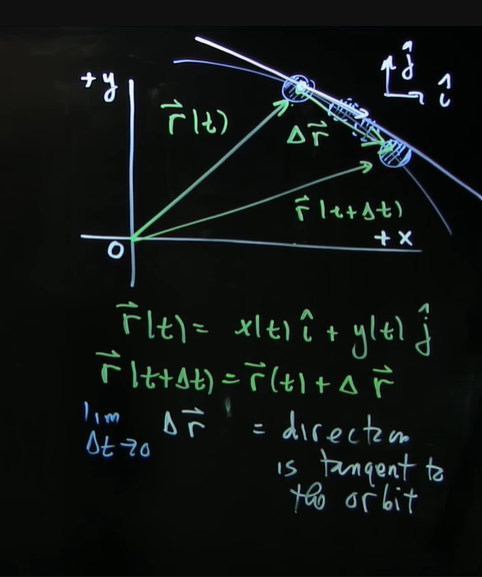 +y
ĵ
î
r⃗(t)
Δr⃗
r⃗(t+Δt)
+x
0
r⃗(t) = x(t) î + y(t) ĵ
r⃗(t+Δt) = r⃗(t) + Δ r⃗
lim Δt→0 Δr⃗ = direction
is tangent to
the orbit